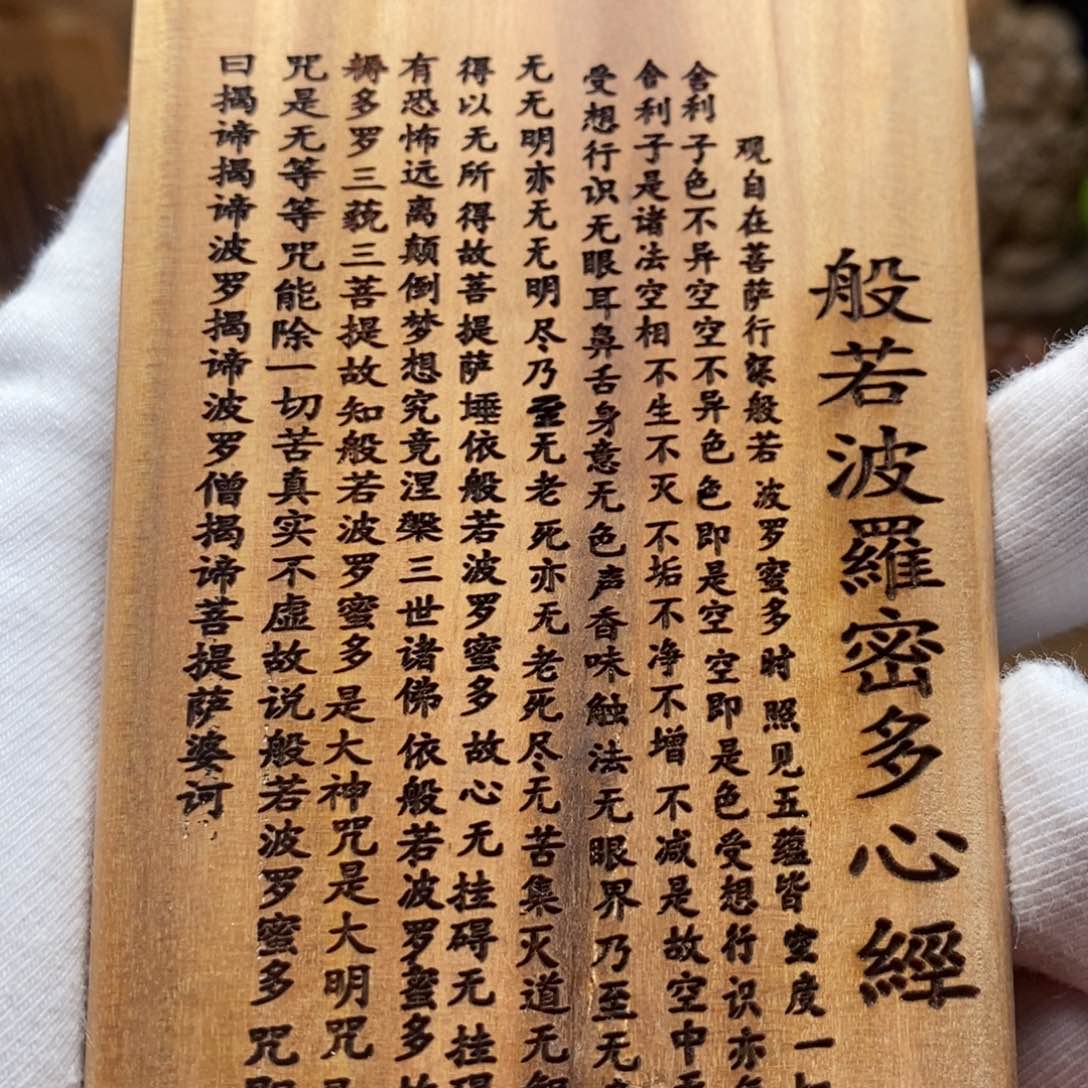 般若波羅密多心經
观自在菩萨行深般若波罗蜜多时照见五蕴皆空度一
舍利子色不异空空不异色色即是空空即是色受想行识亦
舍利子是诸法空相不生不灭不垢不净不增不减是故空中
受想行识无眼耳鼻舌身意无色声香味触法无眼界乃至无
无无明亦无无明尽乃至无老死亦无老死尽无苦集灭道无
得以无所得故菩提萨埵依般若波罗蜜多故心无挂碍无挂
有恐怖远离颠倒梦想究竟涅槃三世诸佛依般若波罗蜜多
耨多罗三藐三菩提故知般若波罗蜜多是大神咒是大明咒
咒是无等等咒能除一切苦真实不虚故说般若波罗蜜多咒
曰揭谛揭谛波罗揭谛波罗僧揭谛菩提萨婆诃